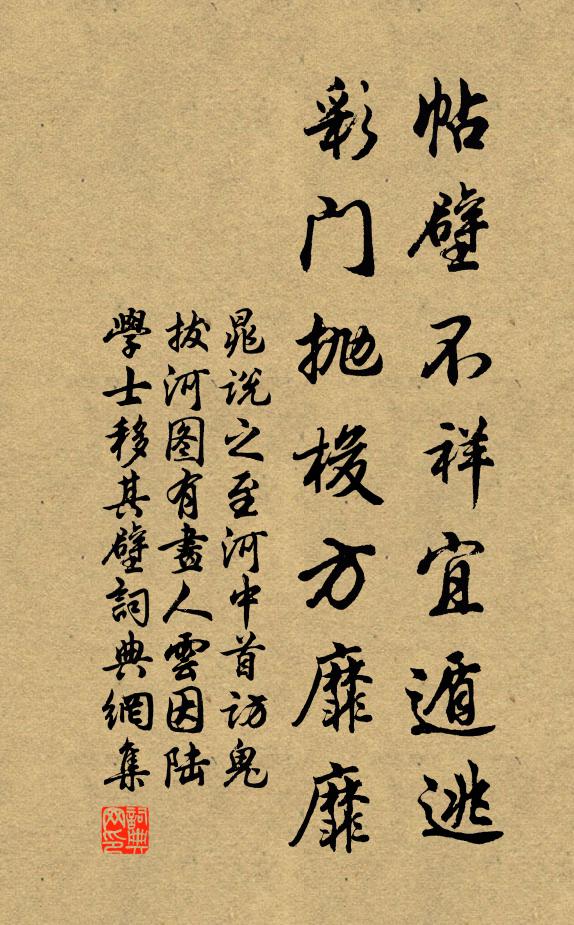 帖壁不祥宜遁逃
彩門抛梭方靡靡
晁說之至河中首访鬼
拔河图有畫人雲因陆
學士移其壁詞典網集
詞典网印